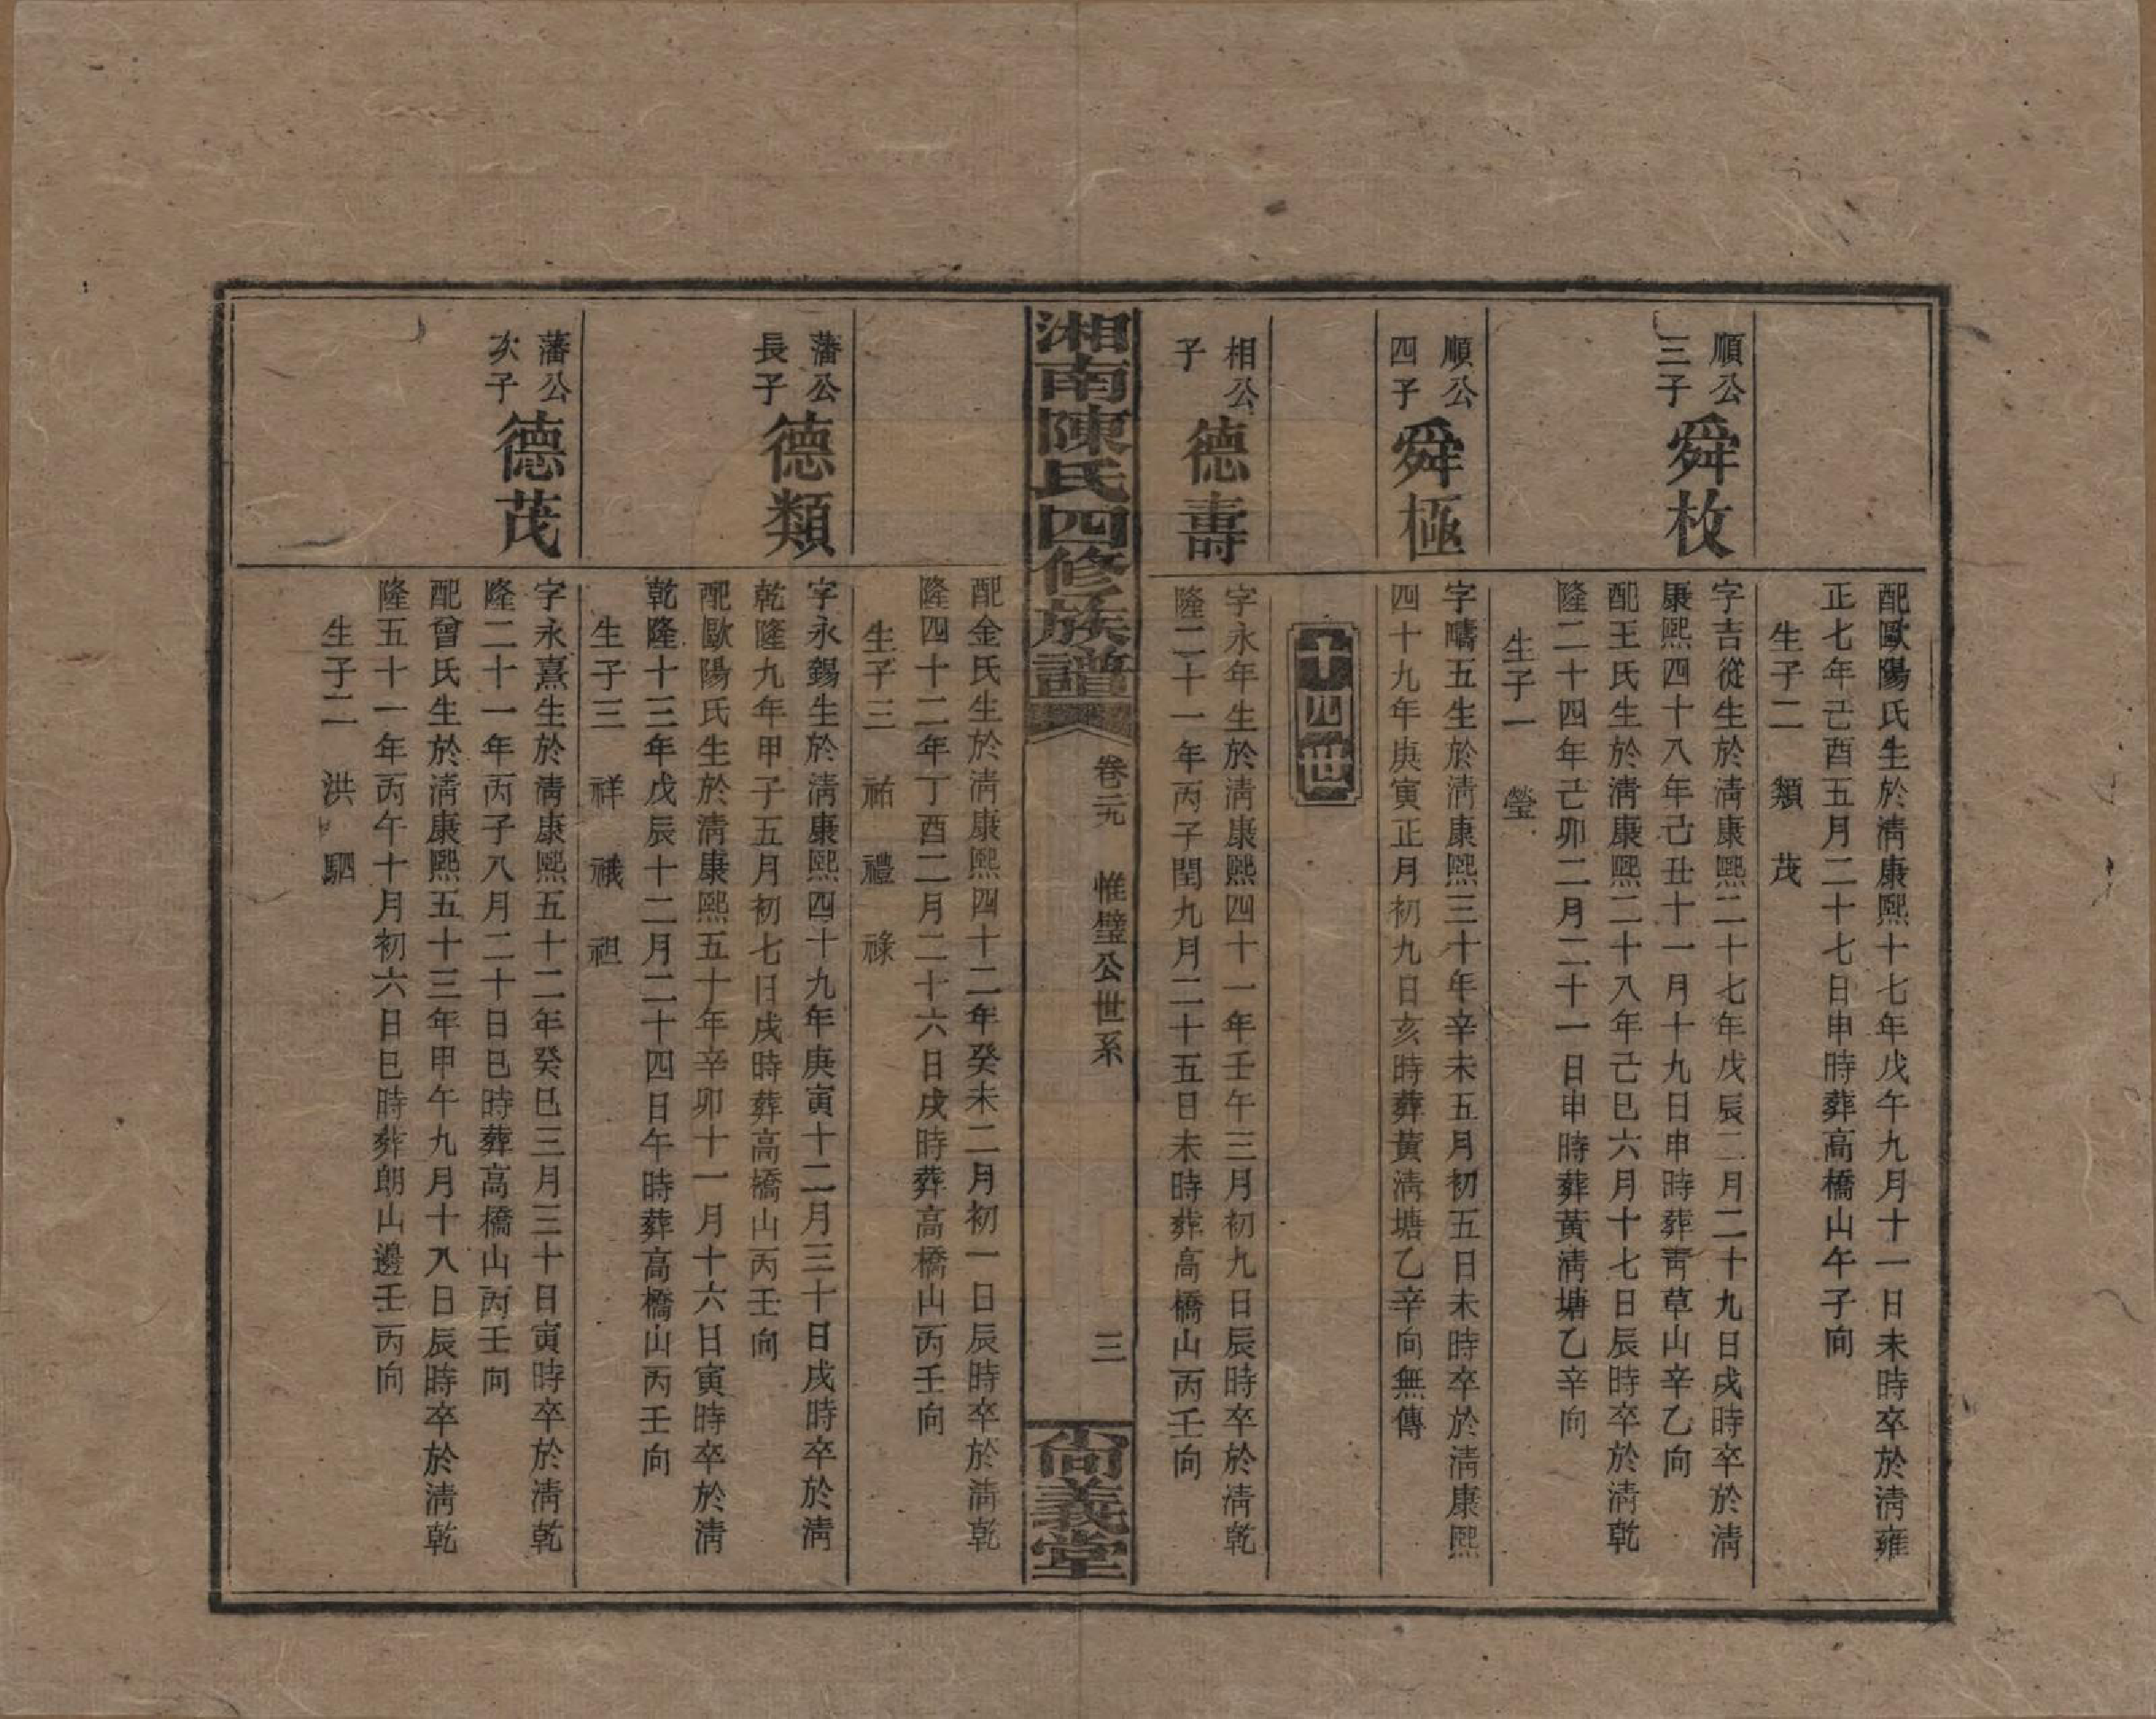 配歐陽氏生於清康熙十七年戊午九月十一日未時卒於清雍
正七年己酉五月二十七日申時葬高橋山午子向
生子二　類　茂
順公
三子
舜枚
字吉從生於清康熙二十七年戊辰二月二十九日戌時卒於清
康熙四十八年己丑十一月十九日申時葬青草山辛乙向
配王氏生於清康熙二十八年己巳六月十七日辰時卒於清乾
隆二十四年己卯二月二十一日申時葬黃清塘乙辛向
生子一　瑩
順公
四子
舜極
字疇五生於清康熙三十年辛未五月初五日未時卒於清康熙
四十九年庚寅正月初九日亥時葬黃清塘乙辛向無傳
十四世
相公
子
德壽
字永年生於清康熙四十一年壬午三月初九日辰時卒於清乾
隆二十一年丙子閏九月二十五日未時葬高橋山丙壬向
湘南陳氏四修族譜
卷二九　惟璧公世系　三
尚義堂
配金氏生於清康熙四十二年癸未二月初一日辰時卒於清乾
隆四十二年丁酉二月二十六日戌時葬高橋山丙壬向
生子三　祐　禮　祿
藩公
長子
德類
字永錫生於清康熙四十九年庚寅十二月三十日戌時卒於清
乾隆九年甲子五月初七日戌時葬高橋山丙壬向
配歐陽氏生於清康熙五十年辛卯十一月十六日寅時卒於清
乾隆十三年戊辰十二月二十四日午時葬高橋山丙壬向
生子三　祥　祴　祖
藩公
次子
德茂
字永熹生於清康熙五十二年癸巳三月三十日寅時卒於清乾
隆二十一年丙子八月二十日巳時葬高橋山丙壬向
配曾氏生於清康熙五十三年甲午九月十八日辰時卒於清乾
隆五十一年丙午十月初六日巳時葬朗山邊壬丙向
生子二　洪　駟